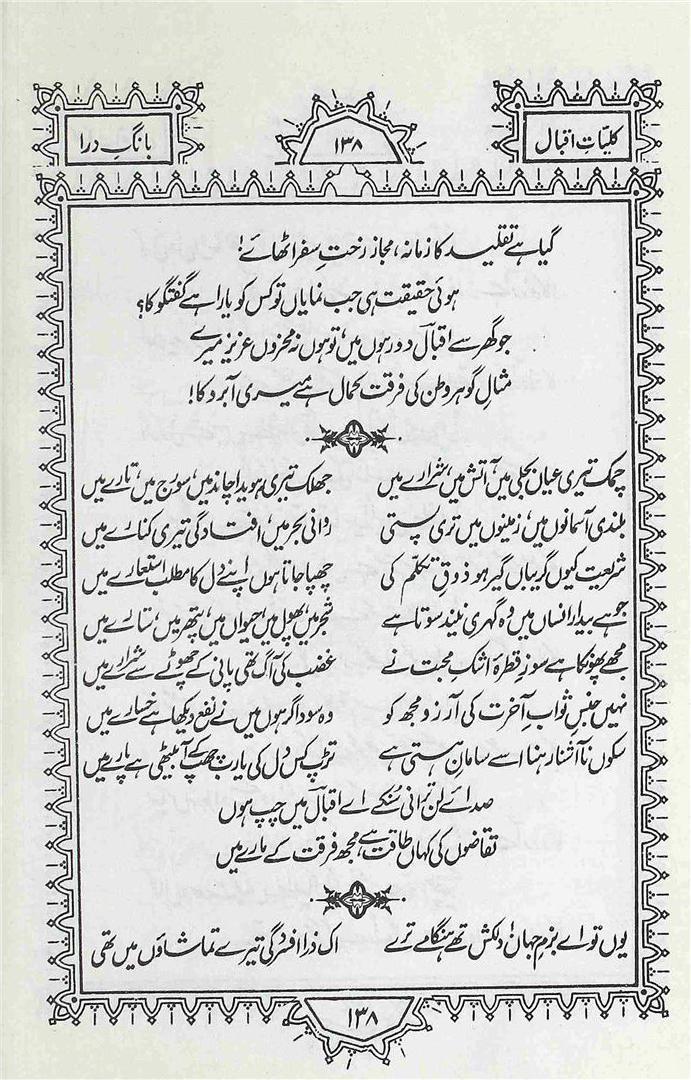 کلیّاتِ اقبال
۱۳۸
بانگِ درا
گیا ہے تقلید کا زمانہ، مجاز رختِ سفر اٹھائے!
ہوئی حقیقت ہی جب نمایاں تو کس کو یارا ہے گفتگو کا؟
جو گھر سے اقبالؔ دور ہوں میں، تو ہوں نہ محزوں عزیز میرے
مثالِ گوہر وطن کی فرقت کمال ہے میری آبرو کا!
چمک تیری عیاں بجلی میں، آتش میں، شرارے میں جھلک تیری ہویدا چاند میں، سورج میں، تارے میں
بلندی آسمانوں میں، زمینوں میں تری پستی روانی بحر میں، افتادگی تیری کنارے میں
شریعت کیوں گریباں گیر ہو ذوقِ تکلّم کی چھپا جاتا ہوں اپنے دل کا مطلب استعارے میں
جو ہے بیدار انساں میں وہ گہری نیند سوتا ہے شجر میں، پھول میں، حیواں میں، پتھر میں، ستارے میں
مجھے پھونکا ہے سوزِ قطرۂ اشکِ محبت نے غضب کی آگ تھی پانی کے چھوٹے سے شرارے میں
نہیں جنسِ ثوابِ آخرت کی آرزو مجھ کو وہ سوداگر ہوں میں نے نفع دیکھا ہے خسارے میں
سکوں ناآشنا رہنا اسے سامانِ ہستی ہے تڑپ کس دل کی یارب چھپ کے آ بیٹھی ہے پارے میں
صدائے لن ترانی سُن کے اے اقبالؔ میں چپ ہوں
تقاضوں کی کہاں طاقت ہے مجھ فرقت کے مارے میں
یوں تو اے بزمِ جہاں! دلکش تھے ہنگامے ترے اک ذرا افسردگی تیرے تماشاؤں میں تھی
۱۳۸